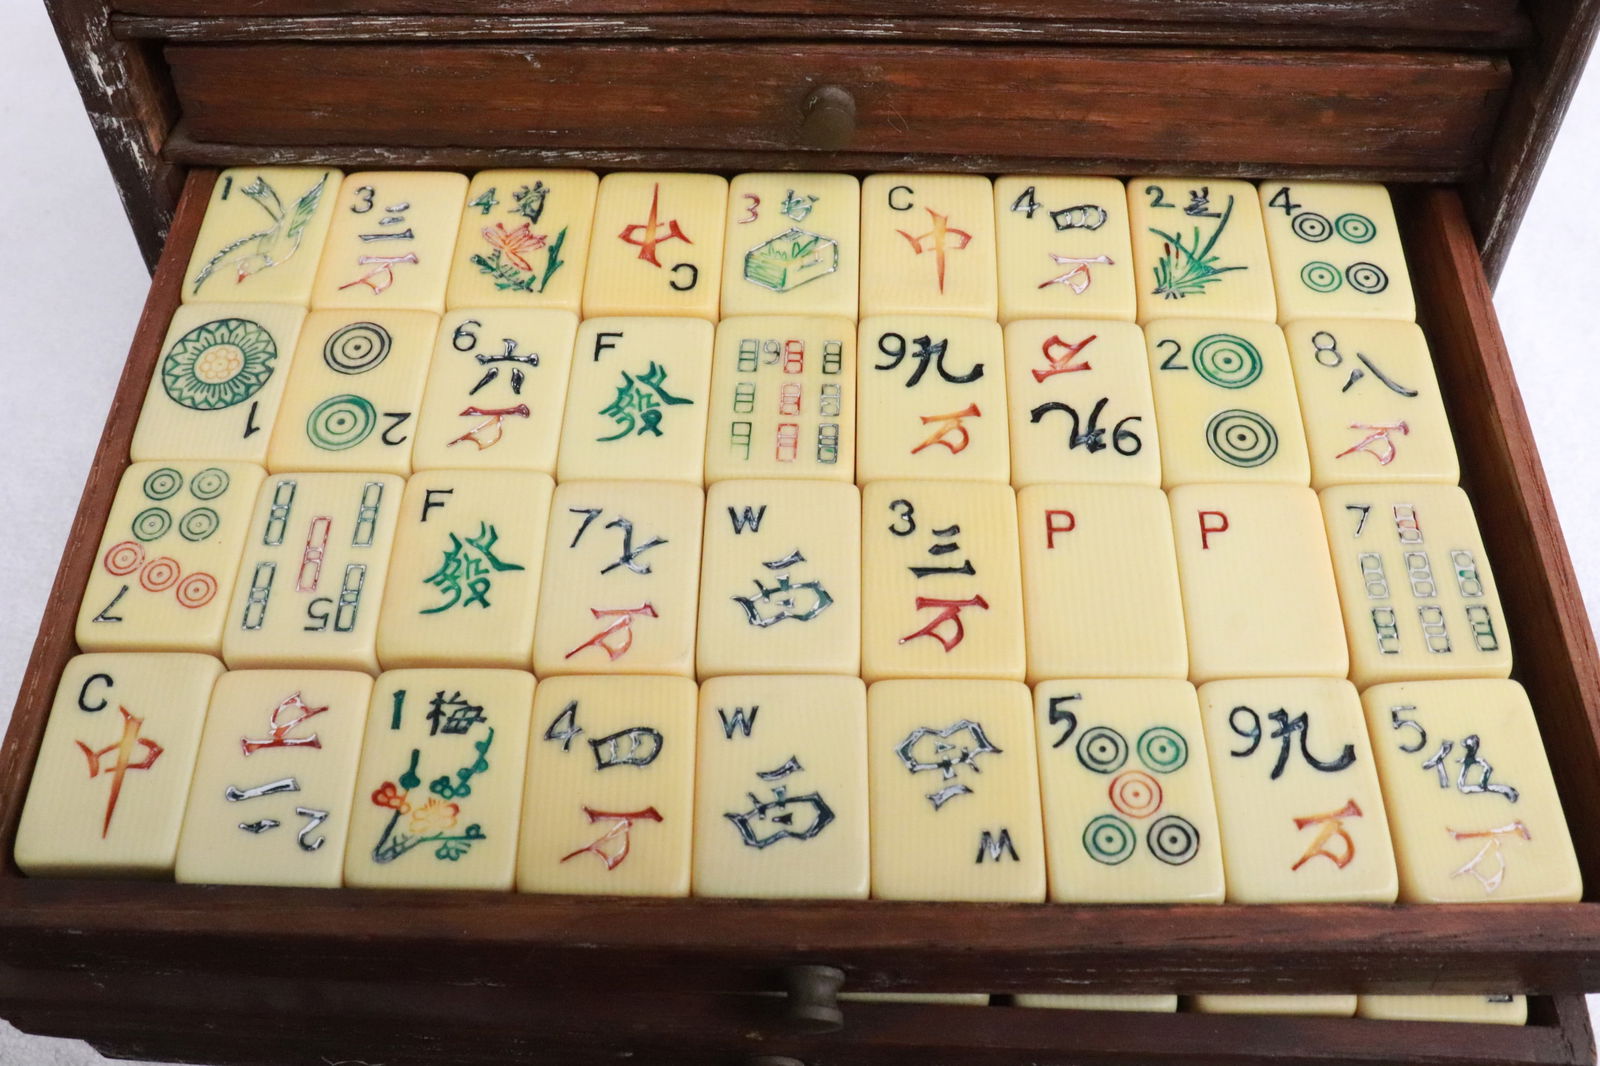 1
3 三
万
4 菊
C
中
3
C
中
4 四
万
2 兰
4
1
2
6 六
万
F
發
9
9 九
万
9 九
万
2
8 八
万
7
5
F
發
7 七
万
W
西
3 三
万
P
P
7
C
中
2 二
万
1 梅
4 四
万
W
西
W
西
5
9 九
万
5 伍
万